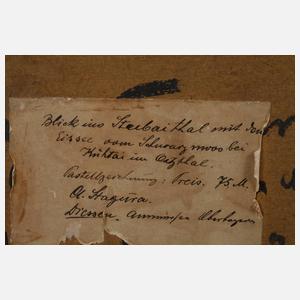 Blick ins Stubaithal mit dem
Eissee vom Schwarzmoos bei
Kühtai im Oetzthal.
Pastellzeichnung: Preis. 75 M.
A. Stagura.
Diessen. Ammersee Oberbayern